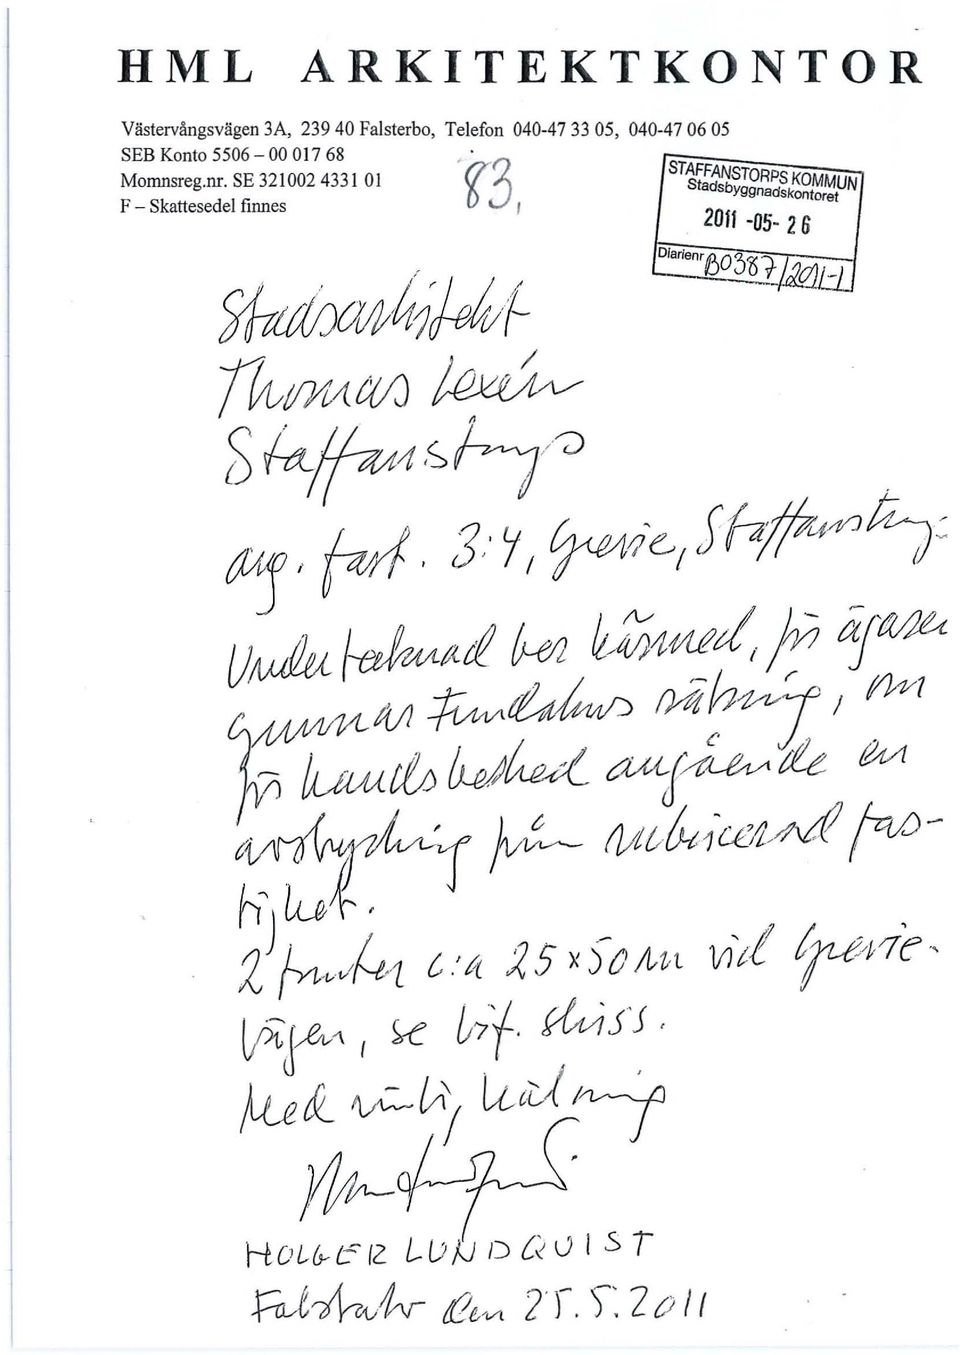 HML ARKITEKTKONTOR
Västervångsvägen 3A, 239 40 Falsterbo, Telefon 040-47 33 05, 040-47 06 05
SEB Konto 5506 – 00 017 68
Momnsreg.nr. SE 321002 4331 01
F – Skattesedel finnes
83,
STAFFANSTORPS KOMMUN
Stadsbyggnadskontoret
2011 -05- 26
Diarienr B0387/2011-1
Stadsarkitekt
Thomas Lexén
Staffanstorp
ang. fast. 3:4, Grevie, Staffanstorp.
Undertecknad ber härmed, för ägaren
Gunnar räkning, om
förhandsbesked angående en
avstyckning från rubricerad fas-
tighet.
2 tomter c:a 25 x 50 m vid Grevie-
vägen, se bif. skiss.
Med vänlig hälsning
HOLGER LUNDQUIST
Falsterbo den 25.5.2011